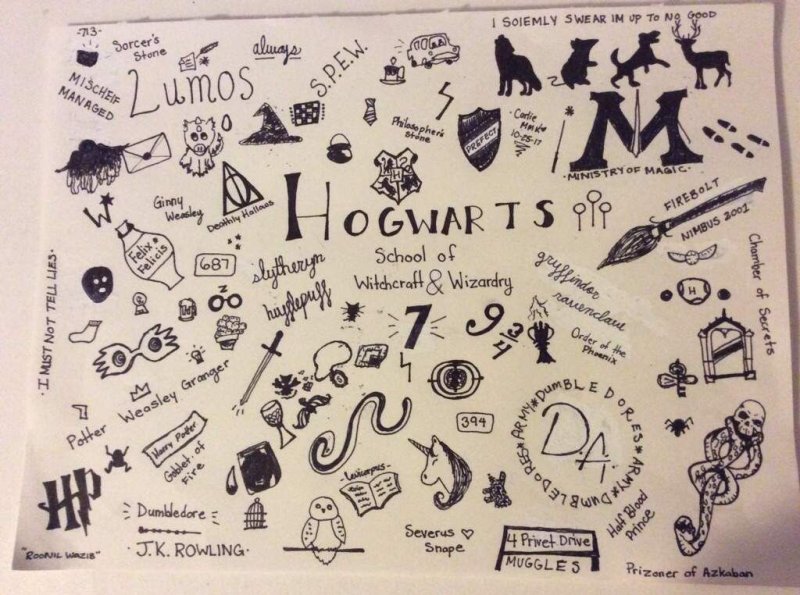 -713-
Sorcer's
Stone
always
S.P.E.W.
I SOlEMLY SWEAR IM UP TO NO GOOD
MISCHEIF
MANAGED
Lumos
Philosopher's
Stone
PREFECT
Carlie
10-25-17
M
·MINISTRY OF MAGIC·
H
W
Ginny
Weasley
Deathly Hallows
HOGWARTS
School of
Witchcraft & Wizardry
FIREBOLT
NIMBUS 2001
Felix
Felicis
687
slytheryn
hufflepuff
gryffindor
ravenclaw
Chamber of Secrets
H
7
9 3/4
Order of the
Phoenix
I MUST NOT TELL LIES.
Weasley Granger
Potter
Harry Potter
Goblet of
Fire
394
DUMBLEDORES*ARMY*DUMBLEDORES*ARMY*
D.A.
HP
Dumbledore
·J.K. ROWLING·
"ROONIL WAZIB"
Severus ♡
Snape
4 Privet Drive
MUGGLES
Half Blood
Prince
Prizoner of Azkaban